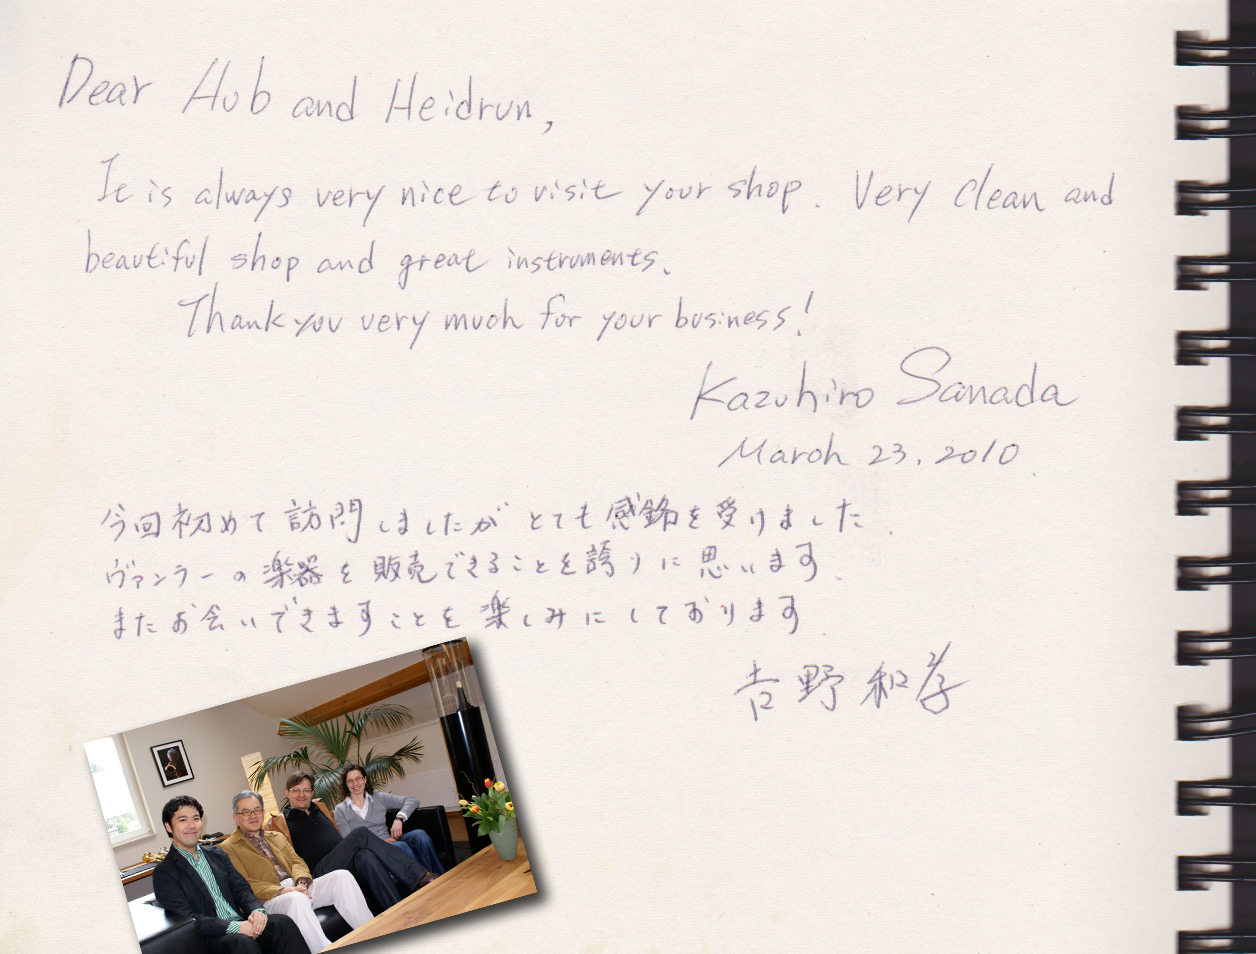 Dear Hub and Heidrun,
It is always very nice to visit your shop. Very clean and
beautiful shop and great instruments.
Thank you very much for your business!
Kazuhiro Sanada
March 23, 2010.
今回初めて訪問しましたがとても感銘を受けました.
ヴァンラーの楽器を販売できることを誇りに思います.
またお会いできますことを楽しみにしております.
吉野和孝